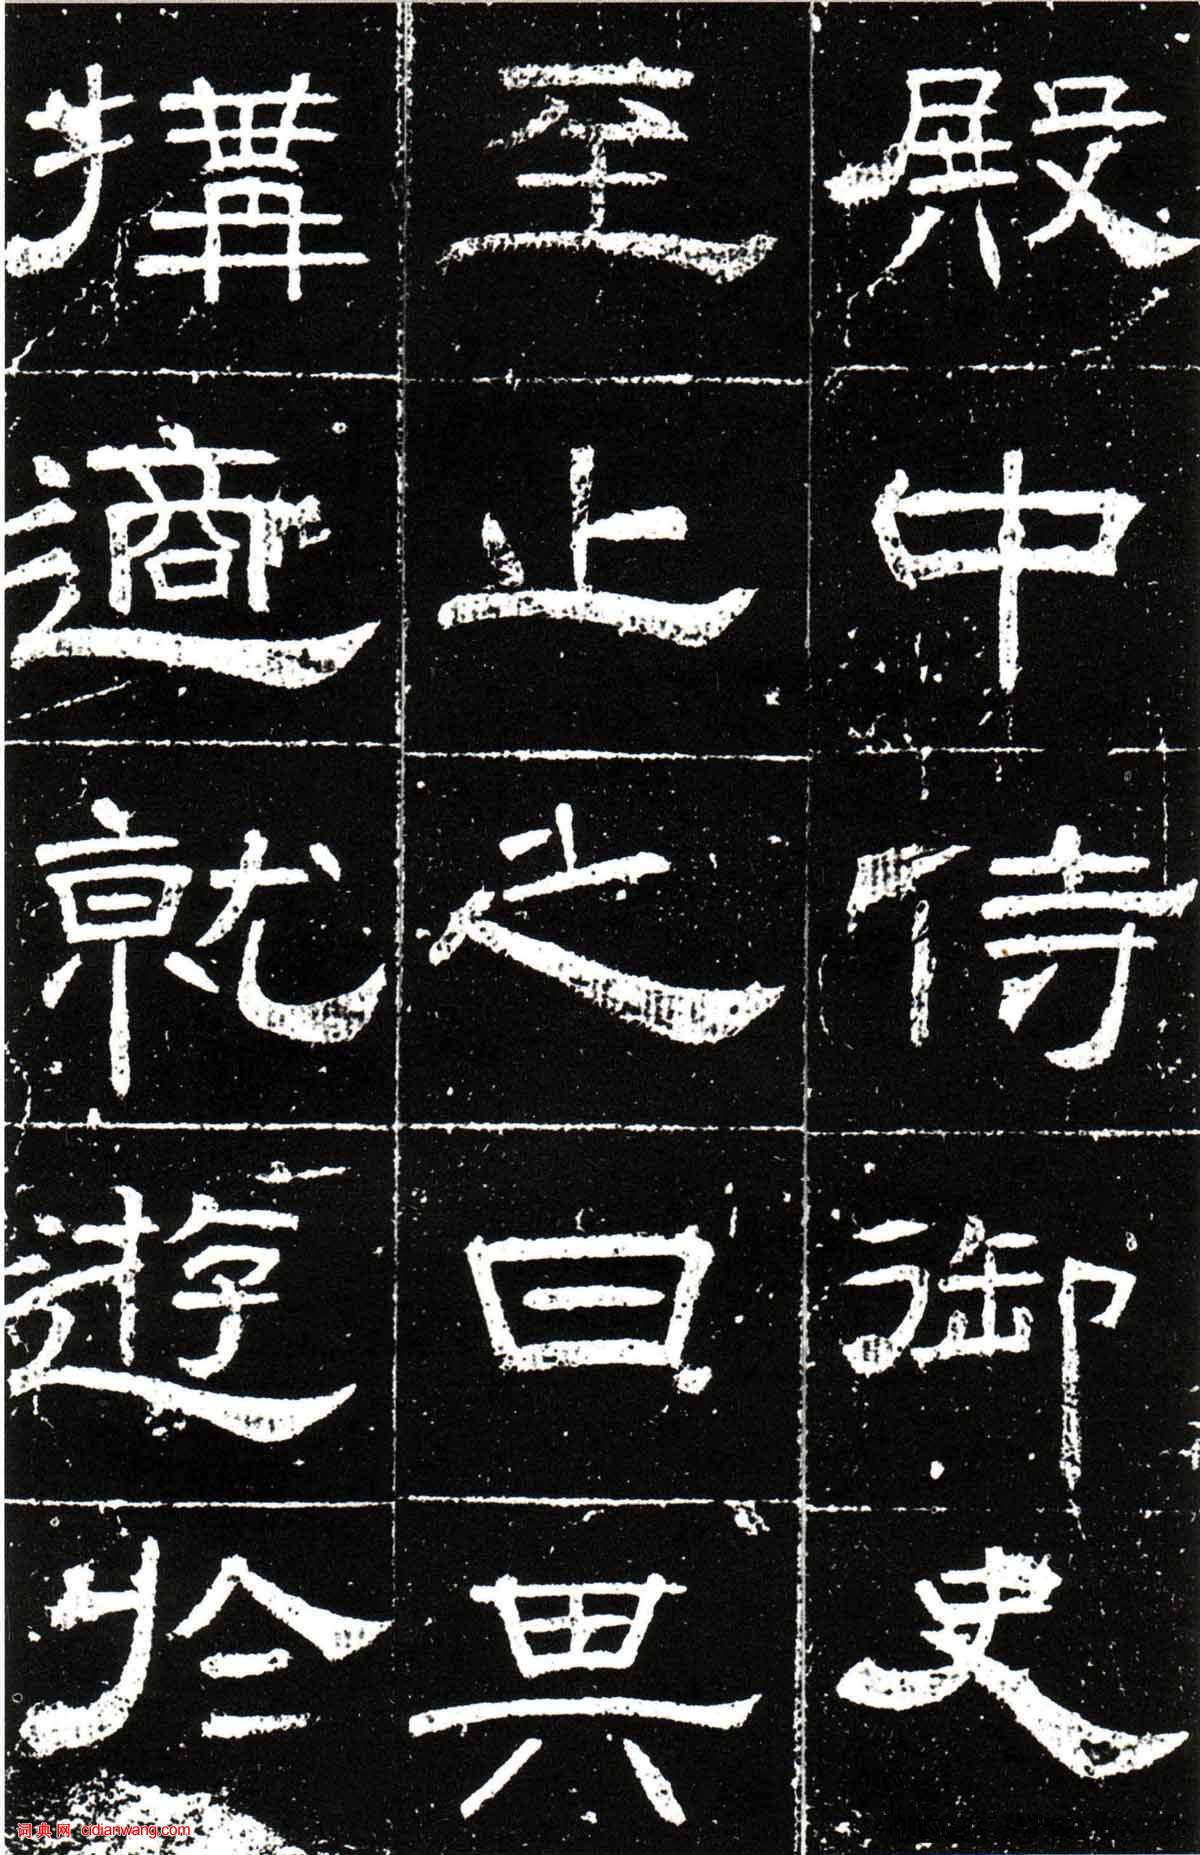 殿中侍御史
至止之日其
搆適就遊於
词典网 cidianwang.com